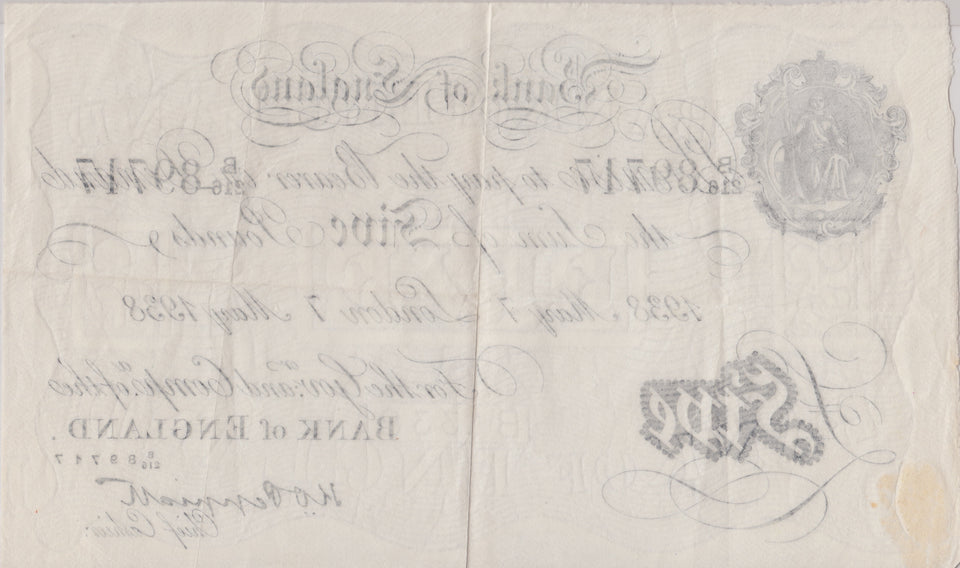 Bank of England
B/216 89717 to pay the Bearer B/216 89717
the Sum of Five Pounds
1938 May 7 London 7 May 1938
For the Govr. and Compa. of the
BANK of ENGLAND.
Five
B/216 89717
K.O. Peppiatt
Chief Cashier.